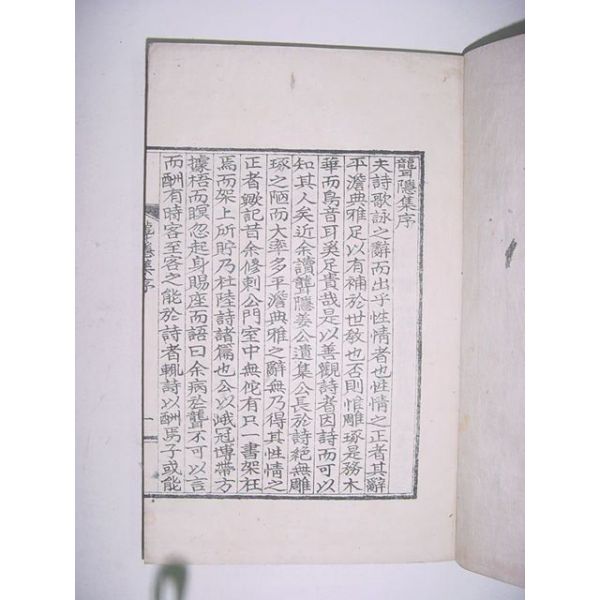 聾隱集序
夫詩歌詠之辭而出乎性情者也性情之正者其辭
平澹典雅足以有補於世敎也否則惟雕琢是務木
華而鳥音耳奚足貴哉是以善觀詩者因詩而可以
知其人矣近余讀聾隱姜公遺集公長於詩絕無雕
琢之陋而大率多平澹典雅之辭無乃得其性情之
正者歟記昔余修刺公門室中無佗有只一書架在
焉而架上所貯乃杜陸詩諸篇也公以峨冠博帶方
據梧而瞑忽起身賜座而語曰余病於聾不可以言
而酬有時客至客之能於詩者輒詩以酬焉子或能
聾隱集序
一